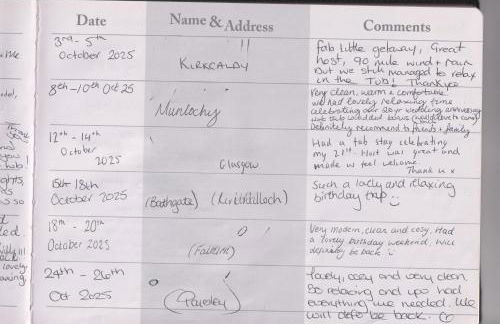 Date
Name & Address
Comments
3rd - 5th
October 2025
KIRKCALDY
fab little getaway, Great
host, 90 mile wind + rain
But we still managed to relax
in the Tub! Thankyou
8th - 10th Oct 25
Munlochy
Very clean, warm & comfortable
we had lovely relaxing time
celebrating our wedding anniversary
hot tub added bonus
Definitely recommend to friends + family
12th - 14th
October
2025
Glasgow
Had a tab stay celebrating
my 21st. Host was great and
made us feel welcome
Thank u x
18th
October 2025
(Bathgate) (Kirkintilloch)
Such a lovely and relaxing
birthday trip
18th - 20th
October 2025
(Falkirk)
Very modern, clean and cosy. Had
a lovely birthday weekend. Will
definitely be back
24th - 26th
Oct 2025
(Paisley)
Lovely, cosy and very clean.
So relaxing and had
everything we needed. We
will defo be back.